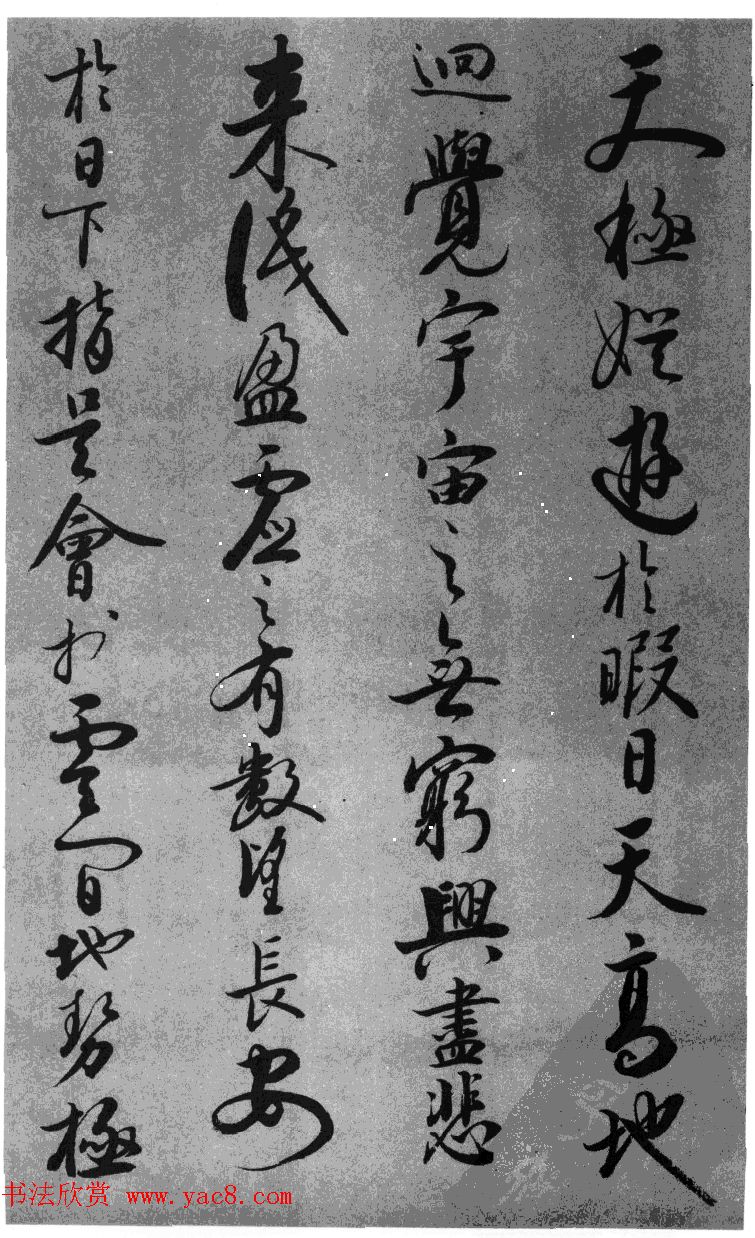 天極娯遊於暇日天高地
迥覺宇宙之無窮興盡悲
来識盈虚之有數望長安
於日下指吴會於雲間地勢極
书法欣赏 www.yac8.com